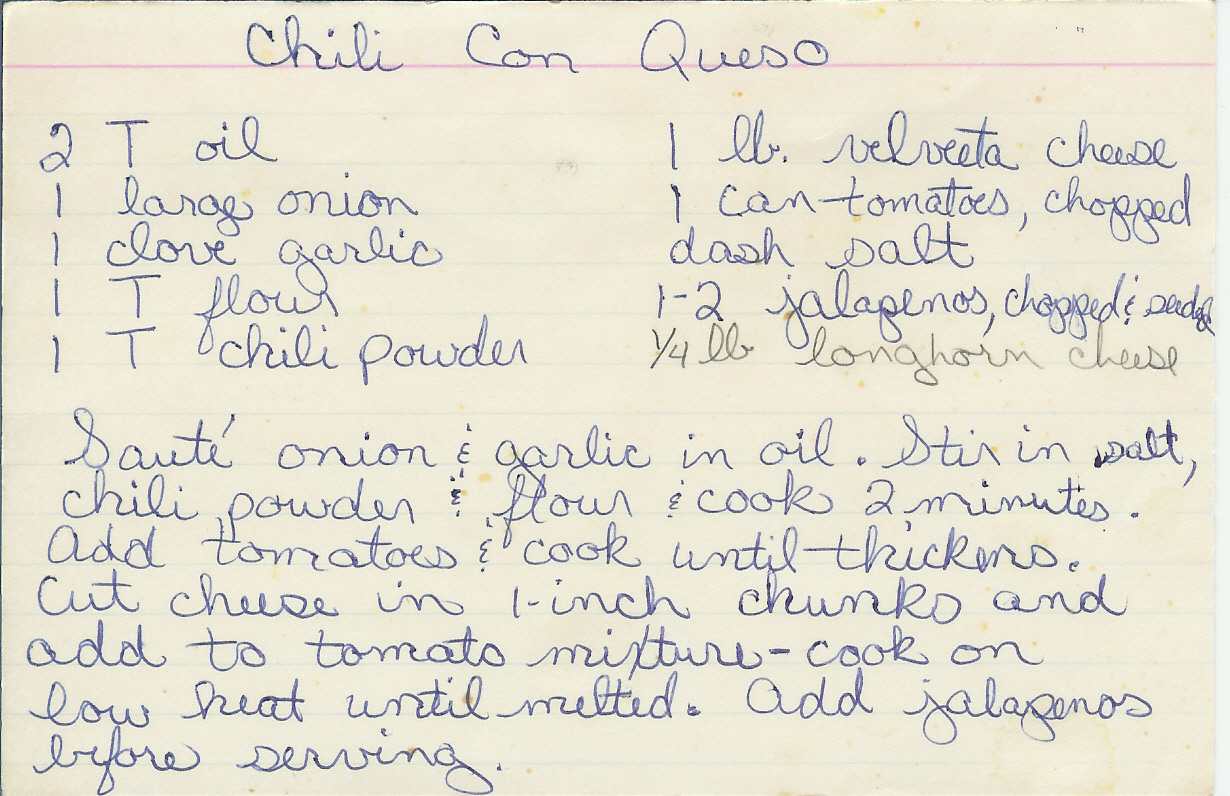 Chili Con Queso
2 T oil
1 large onion
1 clove garlic
1 T flour
1 T chili powder
1 lb. velveeta cheese
1 can tomatoes, chopped
dash salt
1-2 jalapenos, chopped & seeded
1/4 lb longhorn cheese
Sauté onion & garlic in oil. Stir in salt,
chili powder & flour & cook 2 minutes.
Add tomatoes & cook until thickens.
Cut cheese in 1-inch chunks and
add to tomato mixture - cook on
low heat until melted. Add jalapenos
before serving.